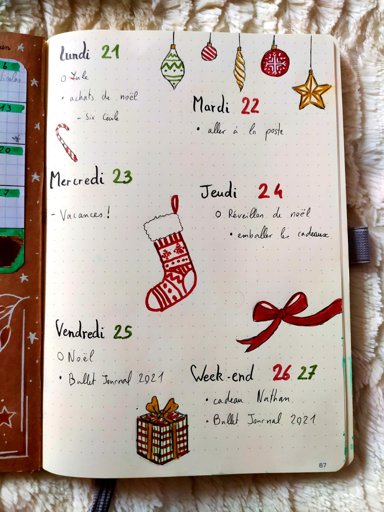 Lundi 21
O Zule
• achats de noël
- Six Ceule
Mardi 22
• aller à la poste
Mercredi 23
- Vacances !
Jeudi 24
O Réveillon de noël
• emballer les cadeaux
Vendredi 25
O Noël
• Bullet Journal 2021
Week-end 26 27
• cadeau Nathan
• Bullet Journal 2021
87
13
20